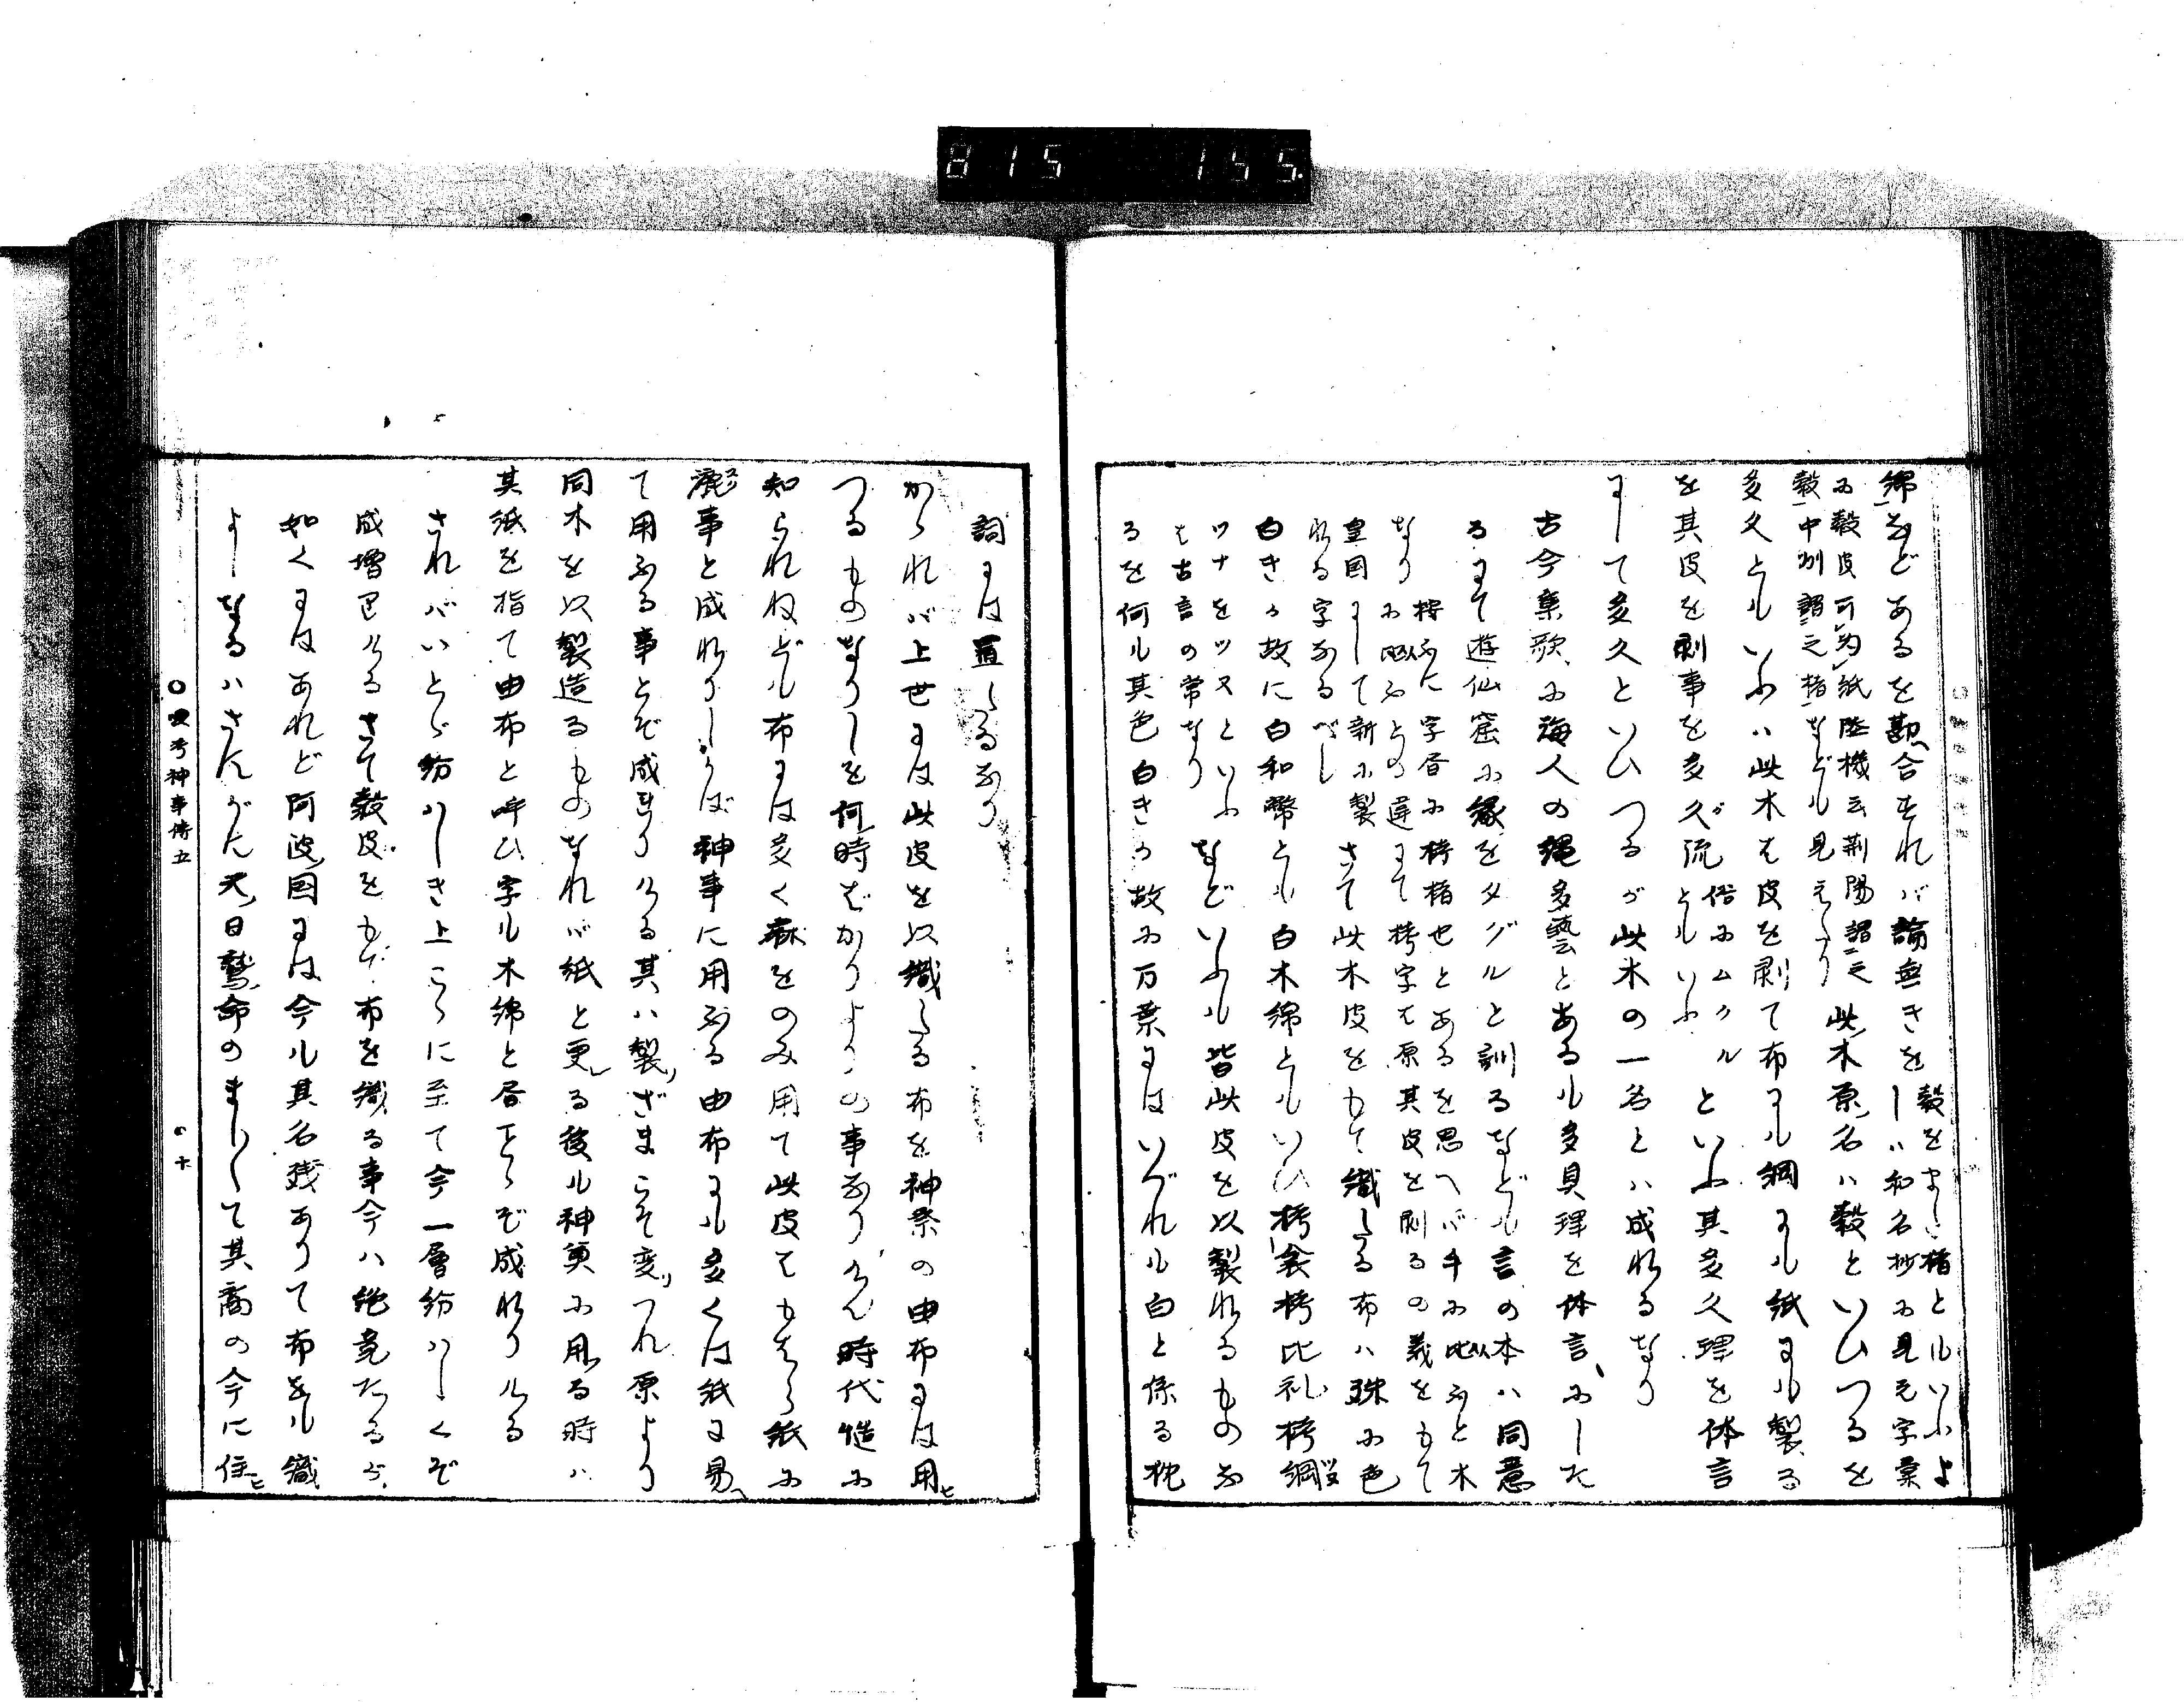 815 155.
綿などあるを勘合すれバ論無きを
穀をまた楮とルいふよ
しハ和名抄に見え字彙
に穀皮可為紙陸機云荊陽謂之
穀中州謂之楮などル見えたり
此木原名ハ穀といひつるを
多久とルいふハ此木を皮を剥て布にル綱にル紙にル製る
を其皮を剥事を多久流
俗にムクル
とルいふ
といふ其多久理を体言
にして多久といひつるが此木の一名とハ成れるなり
古今集歌に海人の縄多藝とあるル多貝理を体言にした
るにて遊仙窟に縁をタグルと訓るなどル言の本ハ同意
なり
按ふに字書に栲楮也とあるを思へバ手に比ふと木
に似ふとの違にて栲字を原其皮を剥るの義をもて
皇国にして新に製
れる字なるべし
さて此木皮をもて織たる布ハ殊に色
白きか故に白和幣とル白木綿とルいひ栲衾栲比礼栲綱
ツナをツヌといふ
を古言の常なり
などいふル皆此皮を以製れるものな
るを何ル其色白きか故に万葉にはいづれル白と係る枕
詞には置たるなり
かゝれバ上世には此皮を以織たる布を神祭の由布には用ヒ
つるものなりしを何時ばかりよりの事なりけん時代慥に
知られねどル布には多く麻をのみ用て此皮をもはら紙に
漉事と成れりしかば神事に用ふる由布にル多くは紙に易ヘ
て用ふる事とぞ成きりける其ハ製ざまこそ変リつれ原より
同木を以製造るものなれバ紙と更る後ル神奠に用る時ハ
其紙を指て由布と呼ひ字ル木綿と書事とぞ成れりける
されバいとゞ紛ハしき上こゝに至て今一層紛ハしくぞ
成増ルける さて穀皮をもて布を織る事今ハ絶竟たるが
如くにはあれど阿波国には今ル其名残ありて布をル織
よしなるハさんがん天日鷲命のましゝて其裔の今に住ヒ
○愛考神事傳五
○十